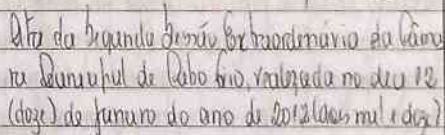 Ata da Segunda Sessão Extraordinário da Câma
ra Municipal de Cabo Frio, realizada no dia 12
(doze) de janeiro do ano de 2012 (dois mil e doze)